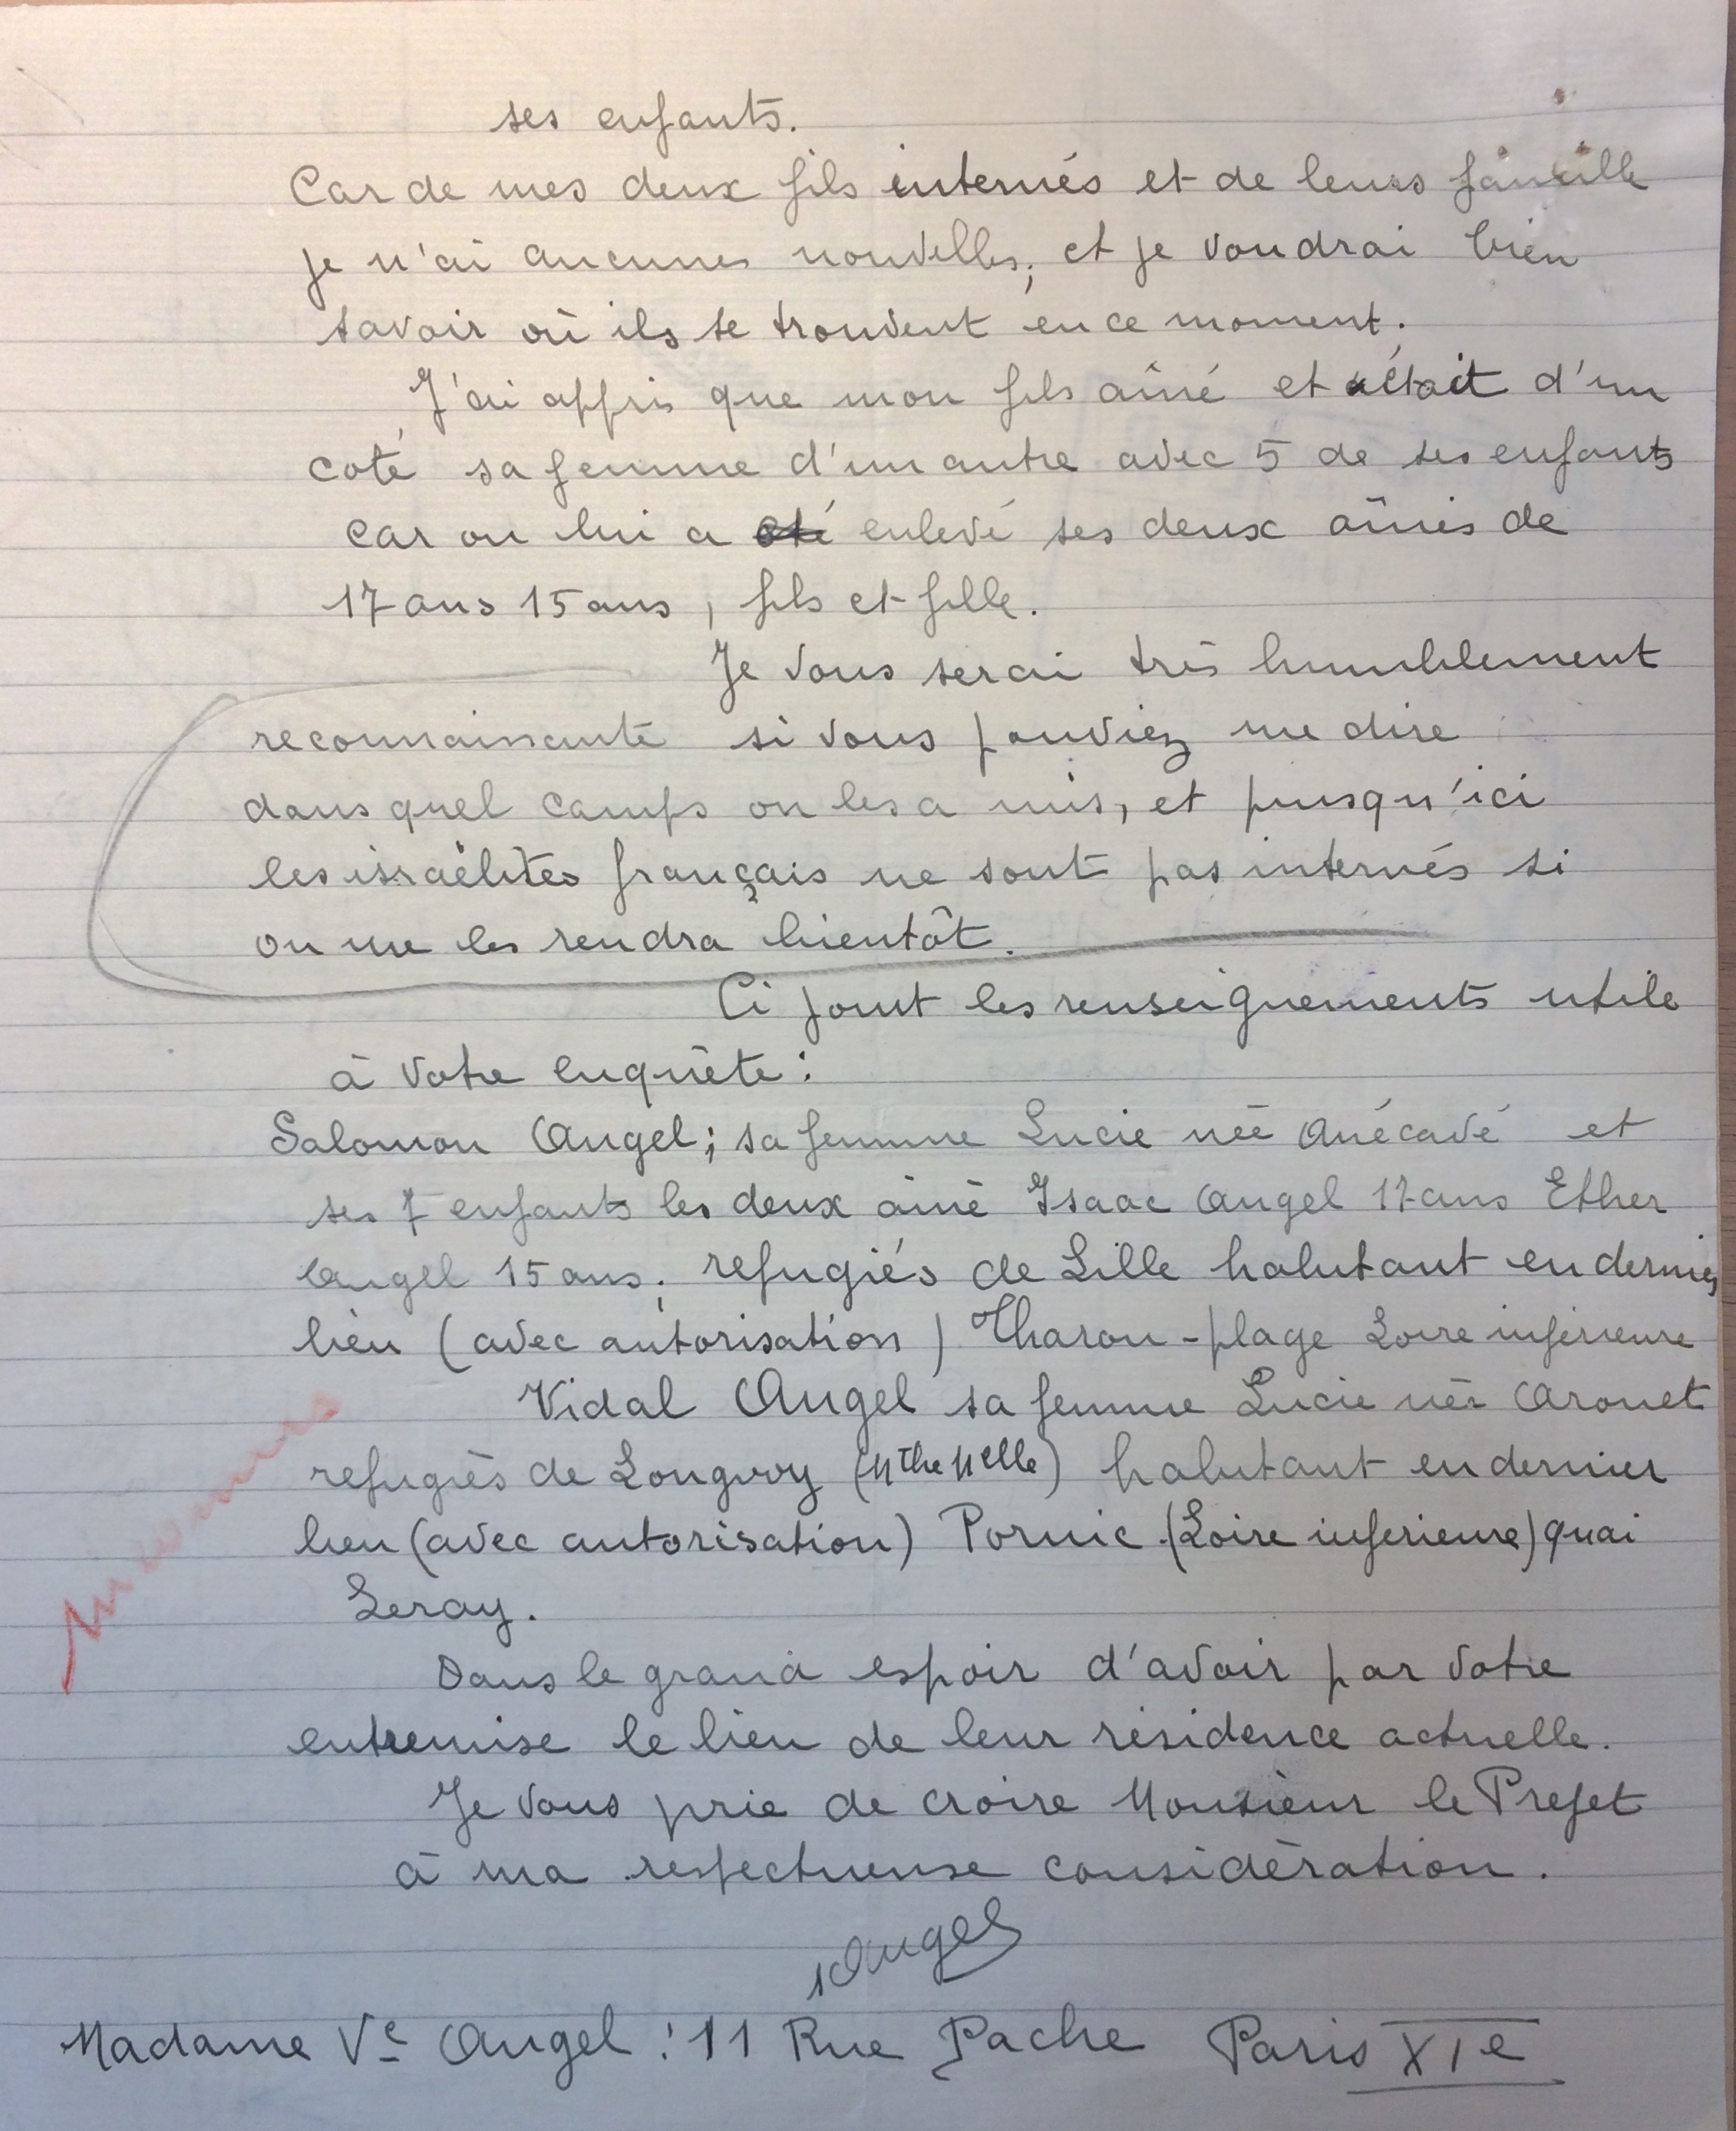 ses enfants.
Car de mes deux fils internés et de leurs famille
je n'ai aucunes nouvelles, et je voudrai bien
savoir où ils se trouvent en ce moment.
J'ai appris que mon fils aîné et était d'un
coté sa femme d'un autre avec 5 de ses enfants
car on lui a oté enlevé ses deux aînés de
17 ans 15 ans, fils et fille.
Je vous serai très humblement
reconnaissante si vous pouviez me dire
dans quel camps on les a mis, et puisqu'ici
les israëlites français ne sont pas internés si
on me les rendra bientôt.
Ci jout les renseignements utile
à votre enquête :
Salomon Angel; sa femme Lucie née Anécavé et
ses 7 enfants les deux ainé Isaac Angel 17 ans Ether
Angel 15 ans; refugiés de Lille habitant en dernier
lieu (avec autorisation) Tharon-plage Loire inférieure
Vidal Angel sa femme Lucie née Arouet
refugiés de Longwy (Mthe Melle) habitant en dernier
lieu (avec autorisation) Pornic (Loire inferieure) quai
Leray.
Dans le grand espoir d'avoir par votre
entremise le lieu de leur résidence actuelle.
Je vous prie de croire Monsieur le Prefet
à ma respectueuse considération.
Angel
Madame Ve Angel : 11 Rue Pache Paris XIe